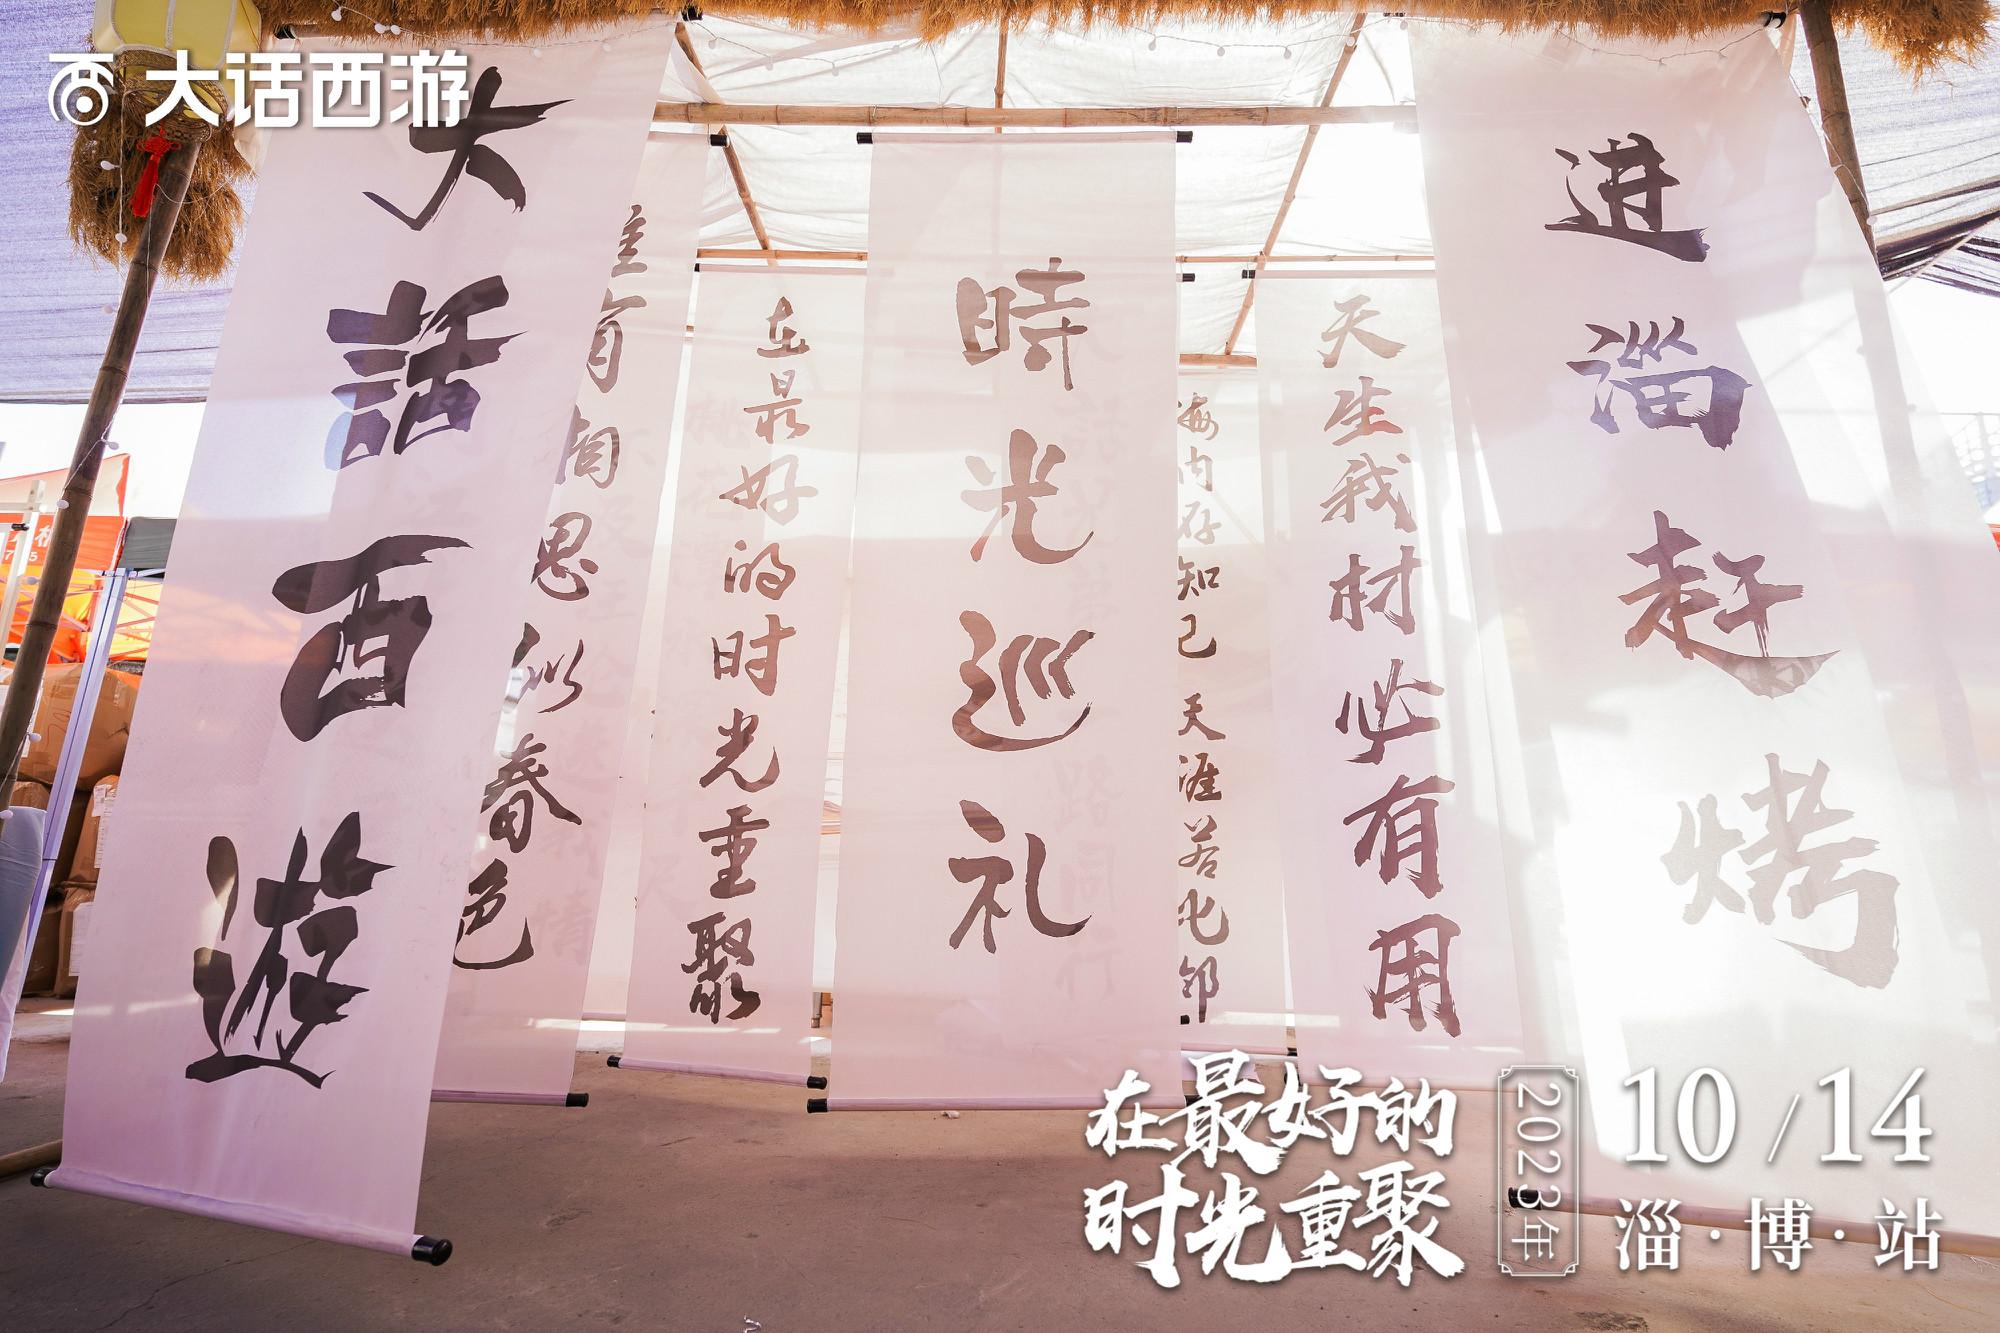 大话西游
大話西遊
唯有相思似春色
在最好的时光重聚
時光巡礼
海内存知己 天涯若比邻
天生我材必有用
进淄赶烤
在最好的
时光重聚
2023年
10/14
淄·博·站